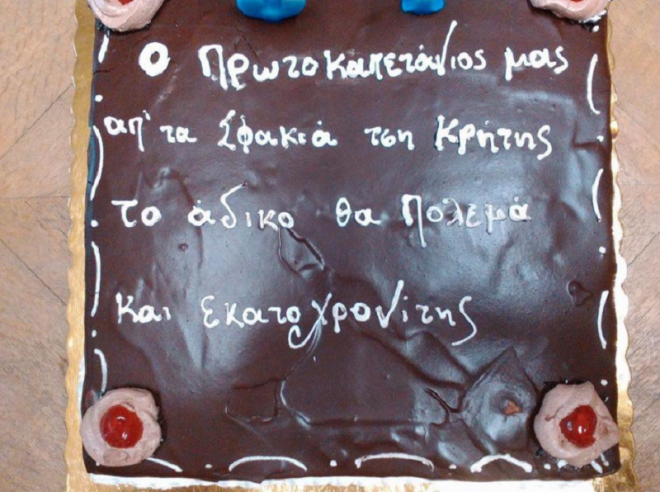 Ο Πρωτοκαπετάνιος μας
απ' τα Σφακιά τση Κρήτης
το άδικο θα πολεμά
και εκατοχρονίτης